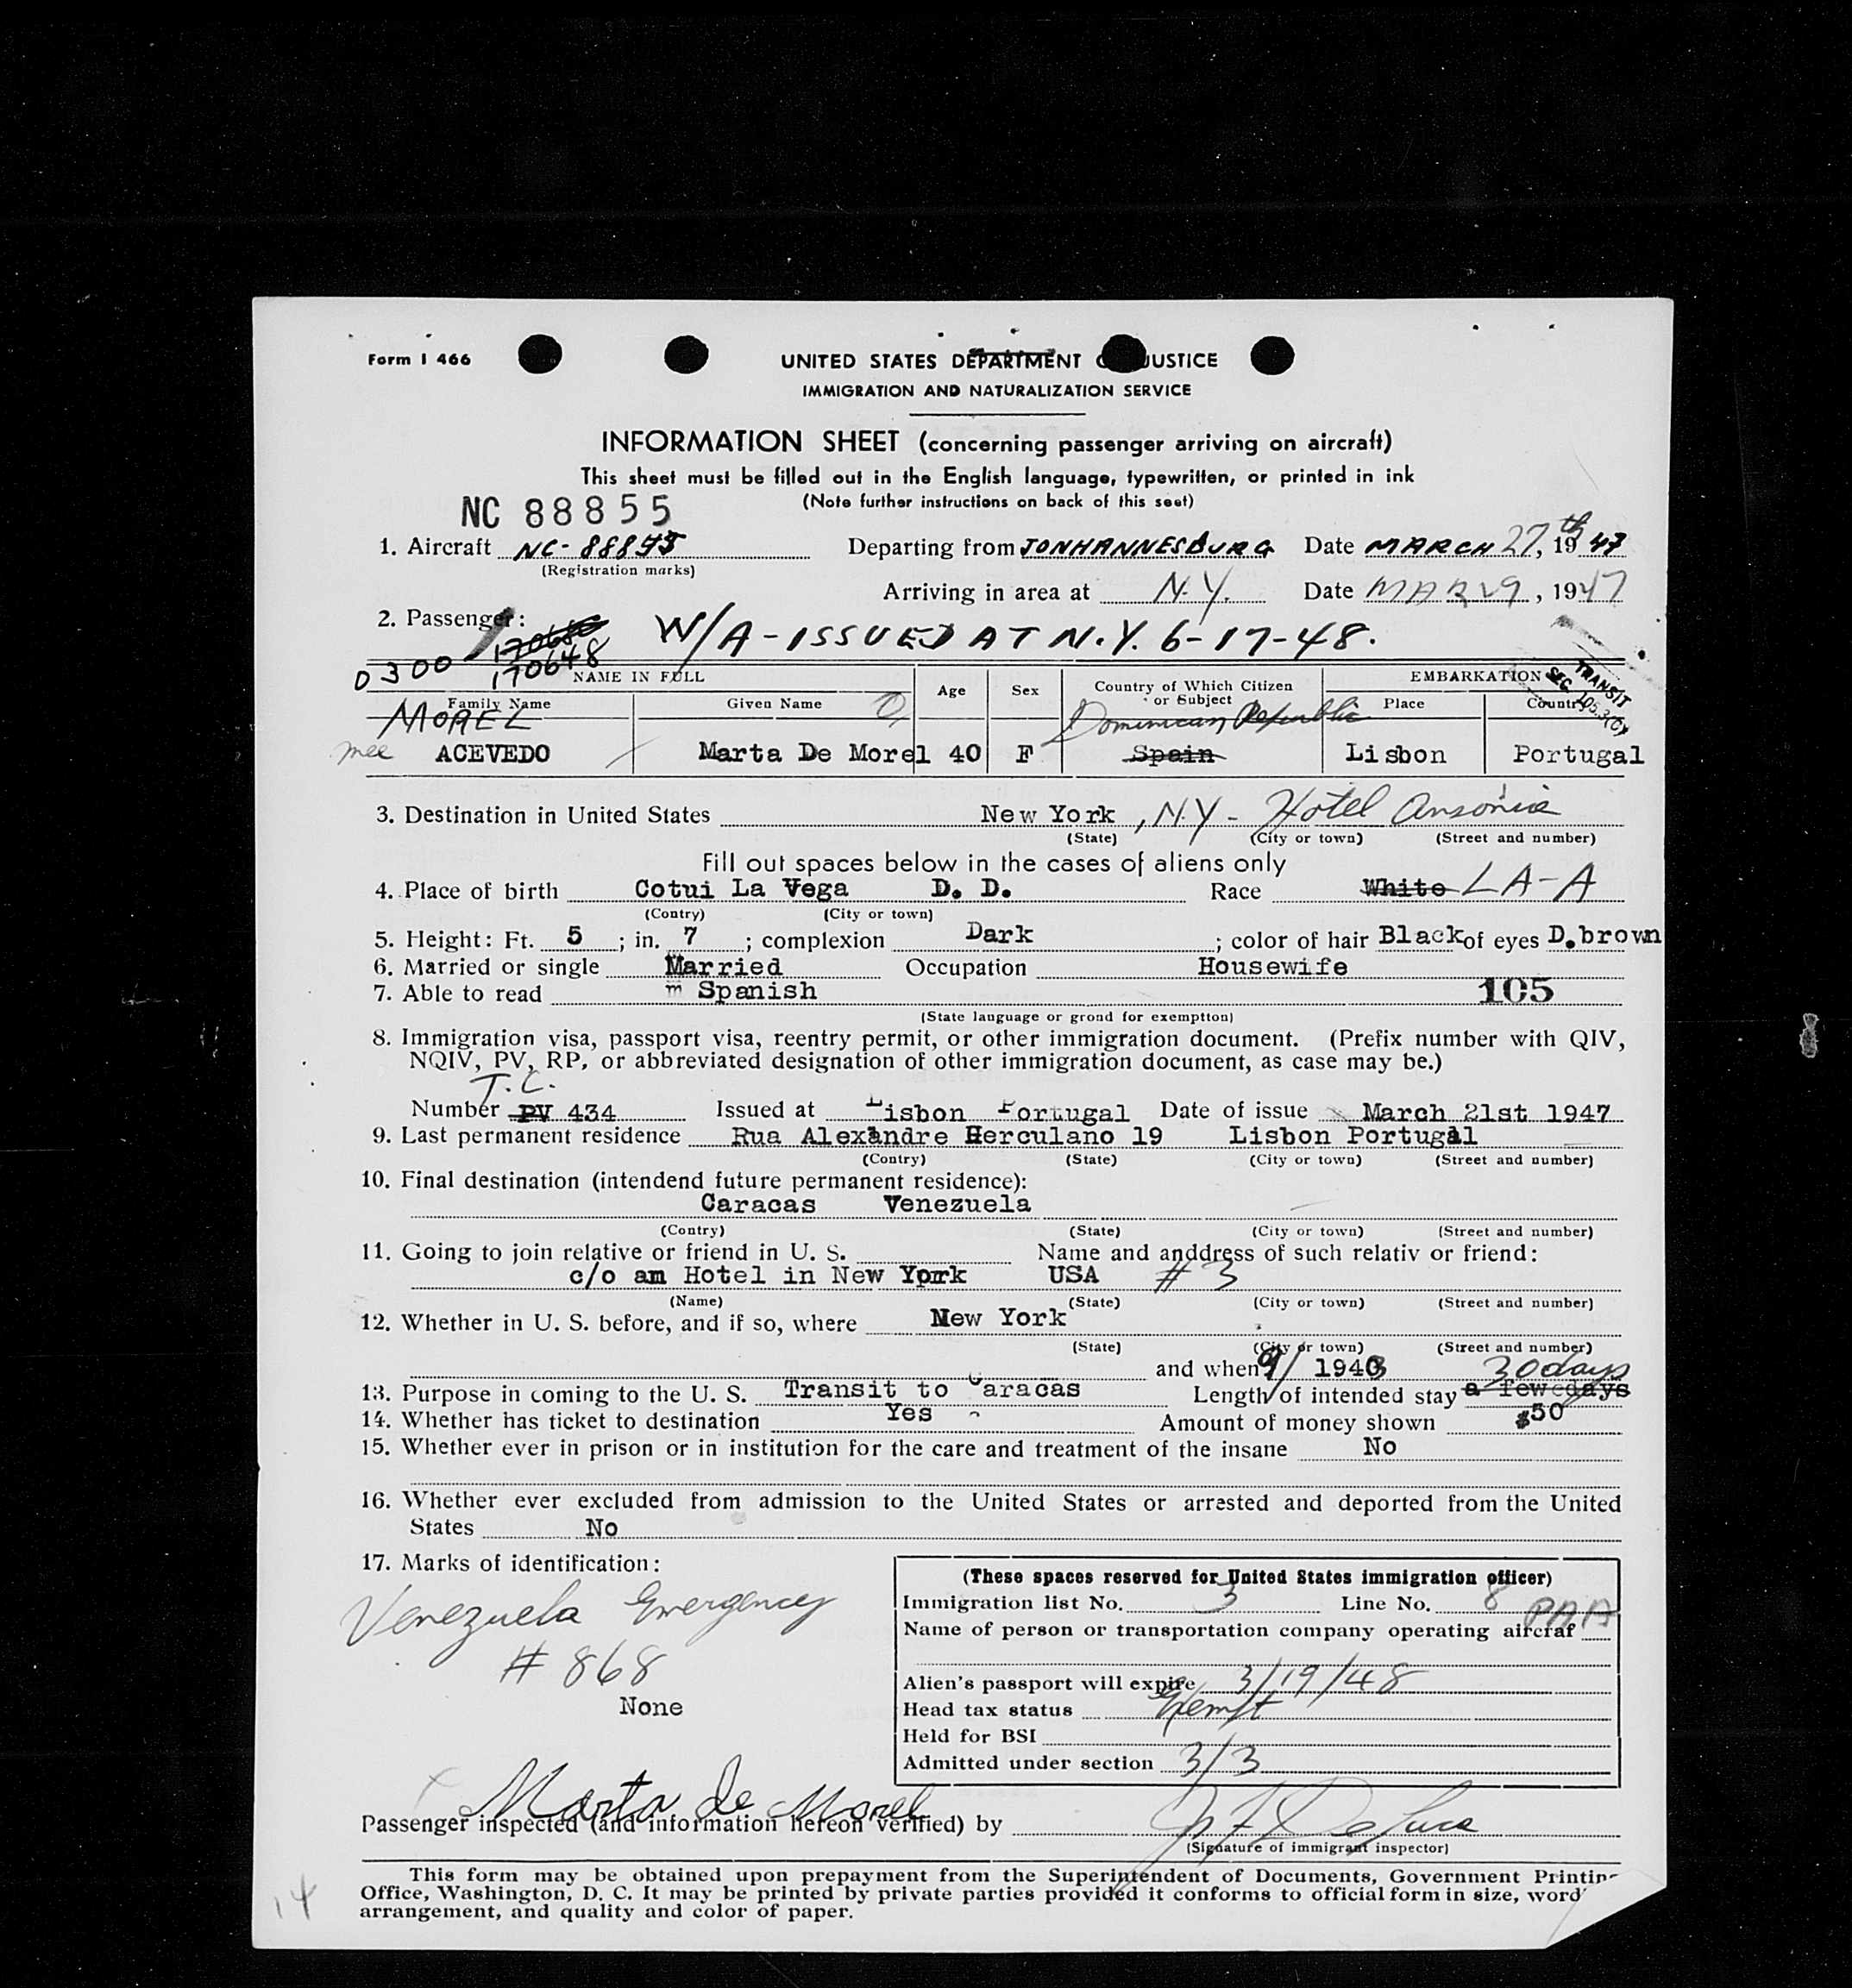 Form I 466
UNITED STATES DEPARTMENT JUSTICE
IMMIGRATION AND NATURALIZATION SERVICE
INFORMATION SHEET (concerning passenger arriving on aircraft)
This sheet must be filled out in the English language, typewritten, or printed in ink
NC 88855 (Note further instructions on back of this seet)
1. Aircraft NC- 88855 Departing from JONHANNESBURG Date MARCH 27th, 1947
(Registration marks)
Arriving in area at N.Y. Date MAR 29, 1947
2. Passenger:
W/A - ISSUED AT N.Y. 6-17-48.
0300 170648 NAME IN FULL Age Sex Country of Which Citizen or Subject EMBARKATION
TRANSIT SEC. 105.3(c)
Family Name Given Name Place Country
MOREL Dominican Republic
nee ACEVEDO Marta De Morel 40 F Spain Lisbon Portugal
3. Destination in United States New York, N.Y - Hotel Ansonia
(State) (City or town) (Street and number)
Fill out spaces below in the cases of aliens only
4. Place of birth Cotui La Vega D. D. Race White LA-A
(Contry) (City or town)
5. Height: Ft. 5; in. 7; complexion Dark; color of hair Black of eyes D.brown
6. Married or single Married Occupation Housewife
7. Able to read Spanish 105
(State language or grond for exemption)
8. Immigration visa, passport visa, reentry permit, or other immigration document. (Prefix number with QIV,
NQIV, PV, RP, or abbreviated designation of other immigration document, as case may be.)
T.C.
Number PV 434 Issued at Lisbon Portugal Date of issue March 21st 1947
9. Last permanent residence Rua Alexandre Herculano 19 Lisbon Portugal
(Contry) (State) (City or town) (Street and number)
10. Final destination (intendend future permanent residence):
Caracas Venezuela
(Contry) (State) (City or town) (Street and number)
11. Going to join relative or friend in U. S. Name and anddress of such relativ or friend:
c/o an Hotel in New York USA # 3
(Name) (State) (City or town) (Street and number)
12. Whether in U. S. before, and if so, where New York
(State) (City or town) (Street and number)
and when 9/ 1943 30 days
13. Purpose in coming to the U. S. Transit to Caracas Length of intended stay a few days
14. Whether has ticket to destination Yes Amount of money shown $50
15. Whether ever in prison or in institution for the care and treatment of the insane No
16. Whether ever excluded from admission to the United States or arrested and deported from the United
States No
17. Marks of identification:
Venezuela Emergency
# 868
None
(These spaces reserved for United States immigration officer)
Immigration list No. 3 Line No. 8
PAA
Name of person or transportation company operating aircraf
Alien's passport will expire 3/19/48
Head tax status Exempt
Held for BSI
Admitted under section 3/3
Marta de Morel
Passenger inspected (and information hereon verified) by
(Signature of immigrant inspector)
This form may be obtained upon prepayment from the Superintendent of Documents, Government Printing
Office, Washington, D. C. It may be printed by private parties provided it conforms to official form in size, word
arrangement, and quality and color of paper.
14